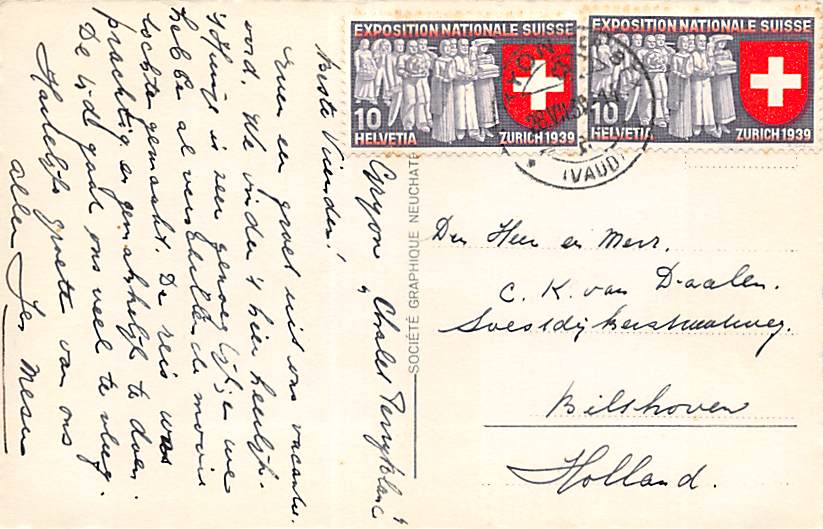 EXPOSITION NATIONALE SUISSE
10
HELVETIA ZURICH 1939
EXPOSITION NATIONALE SUISSE
10
HELVETIA ZURICH 1939
(VAUD)
Gryon, Chalet "Perryblanc"
Beste Vrienden!
Even een groet uit ons vacantie-
oord. We vinden 't hier heerlijk.
't Huisje is zeer genoegelijk en we
hebben al verschillende mooie
tochten gemaakt. De reis was
prachtig en gemakkelijk te doen.
De tijd gaat ons veel te vlug.
Hartelijke groeten van ons
allen
SOCIÉTÉ GRAPHIQUE NEUCHATEL
Den Heer en Mevr.
C. K. van Daalen.
Soestdijkerstraatweg.
Bilthoven
Holland.